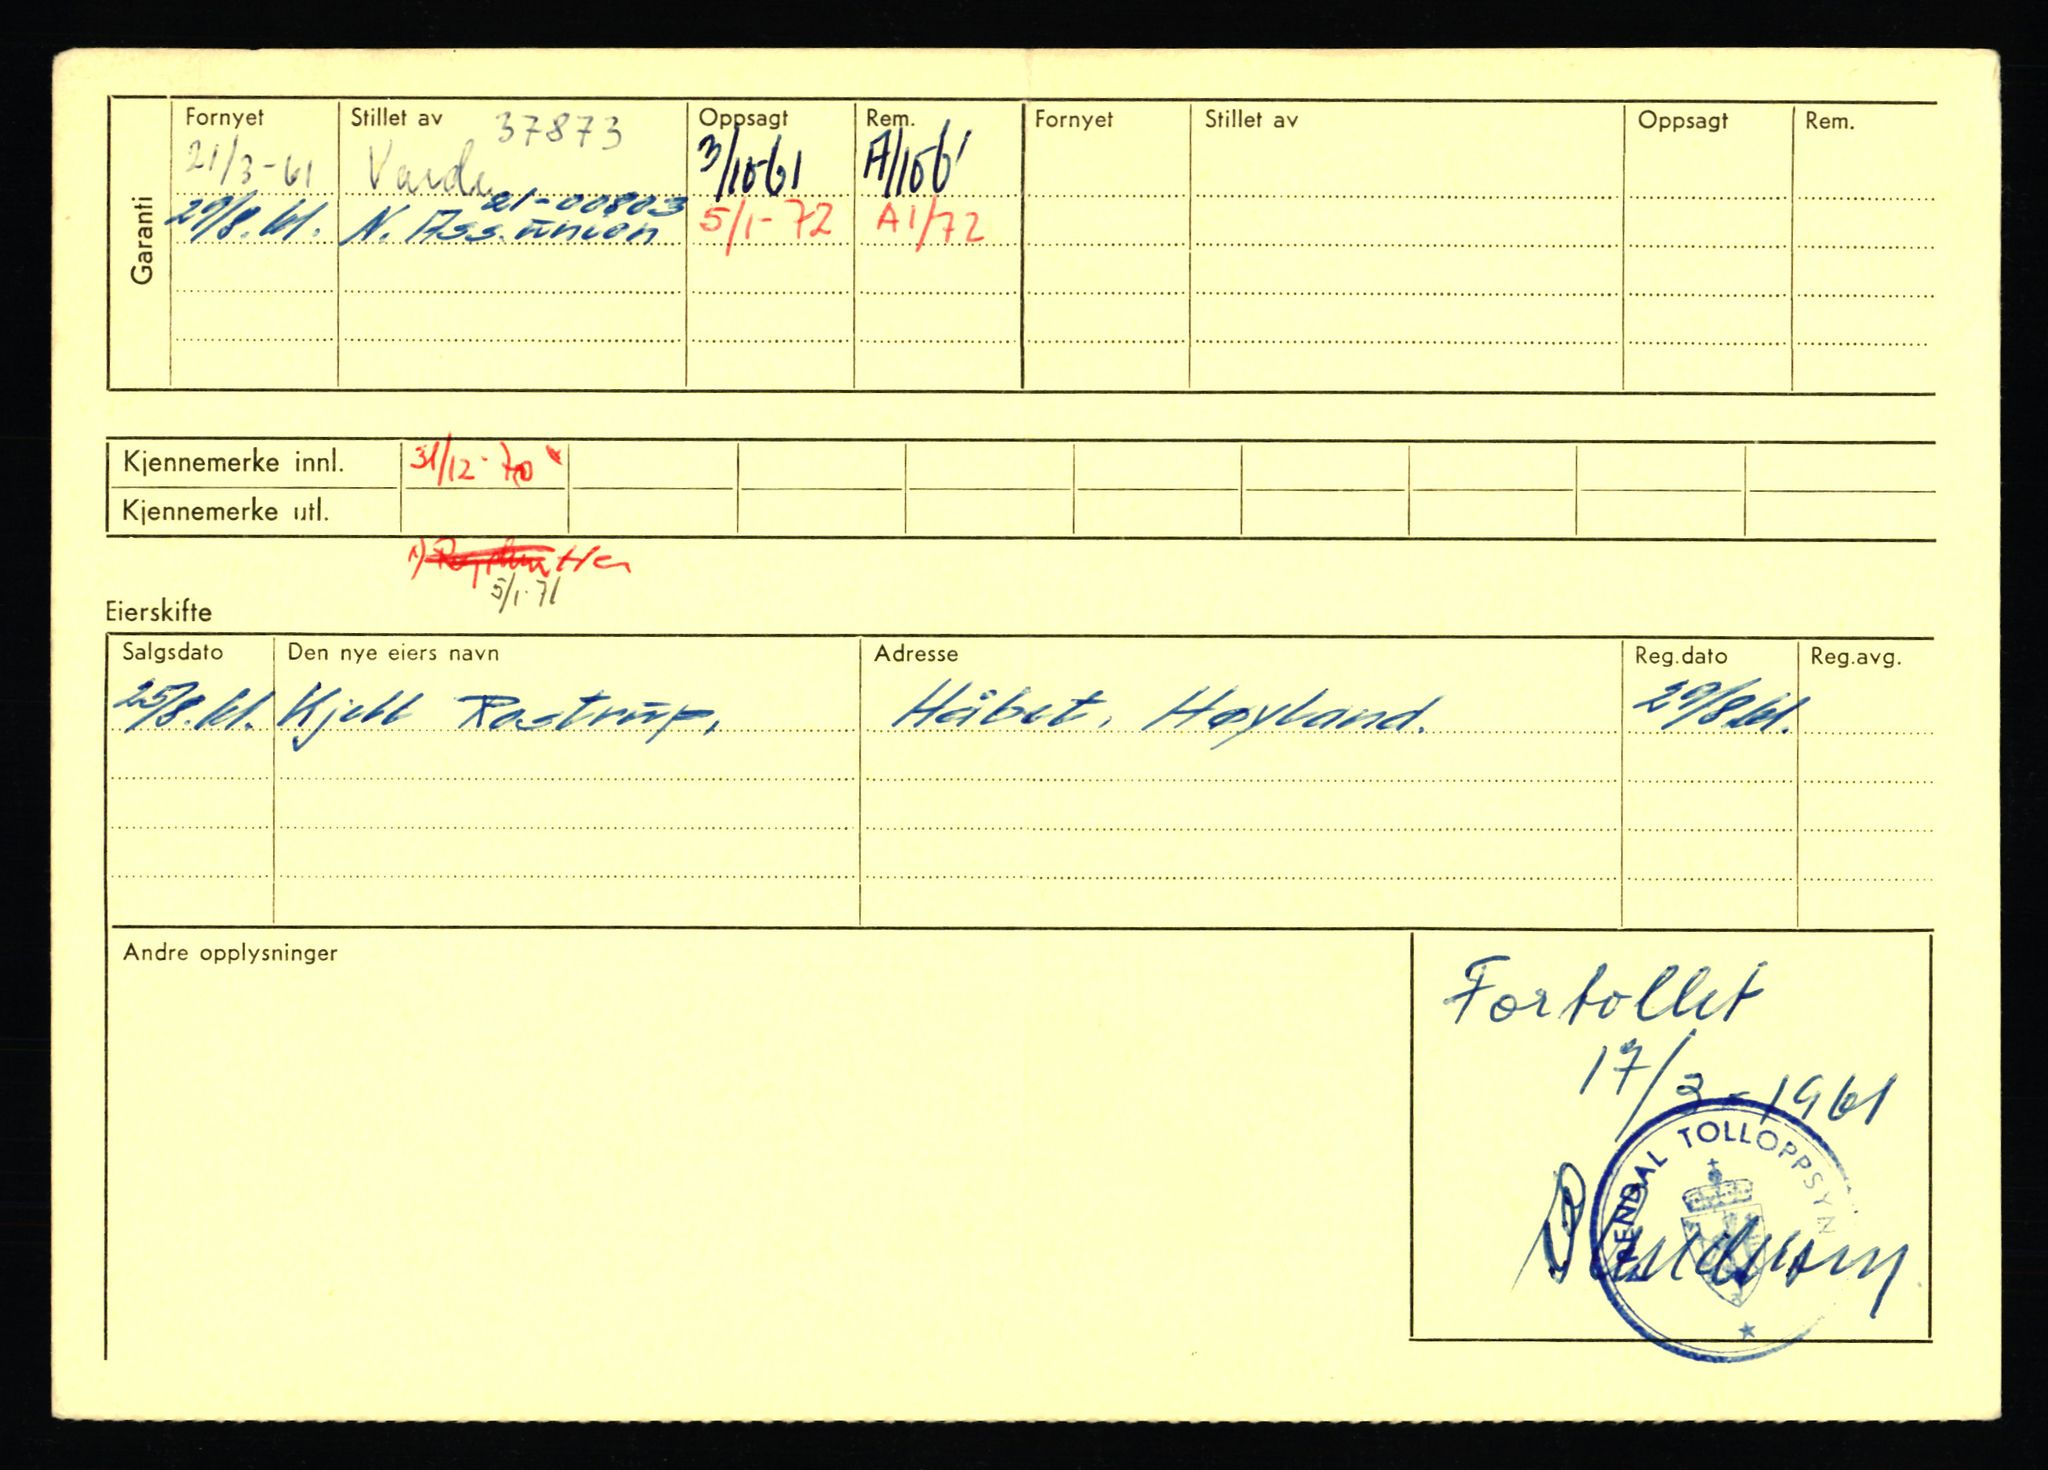 Garanti
Fornyet Stillet av 37873 Oppsagt Rem. Fornyet Stillet av Oppsagt Rem.
21/3-61 3/10-61 A/10 61
29/8.61. N. Ass.union 21-00803 5/1-72 A1/72
Kjennemerke innl. 31/12-70
Kjennemerke utl.
5/1-71
Eierskifte
Salgsdato Den nye eiers navn Adresse Reg.dato Reg.avg.
25/8.61. Kjell Rostrup, Håbet, Høyland. 29/8 61.
Andre opplysninger
Fortollet
17/3-1961
ARENDAL TOLLOPPSYN